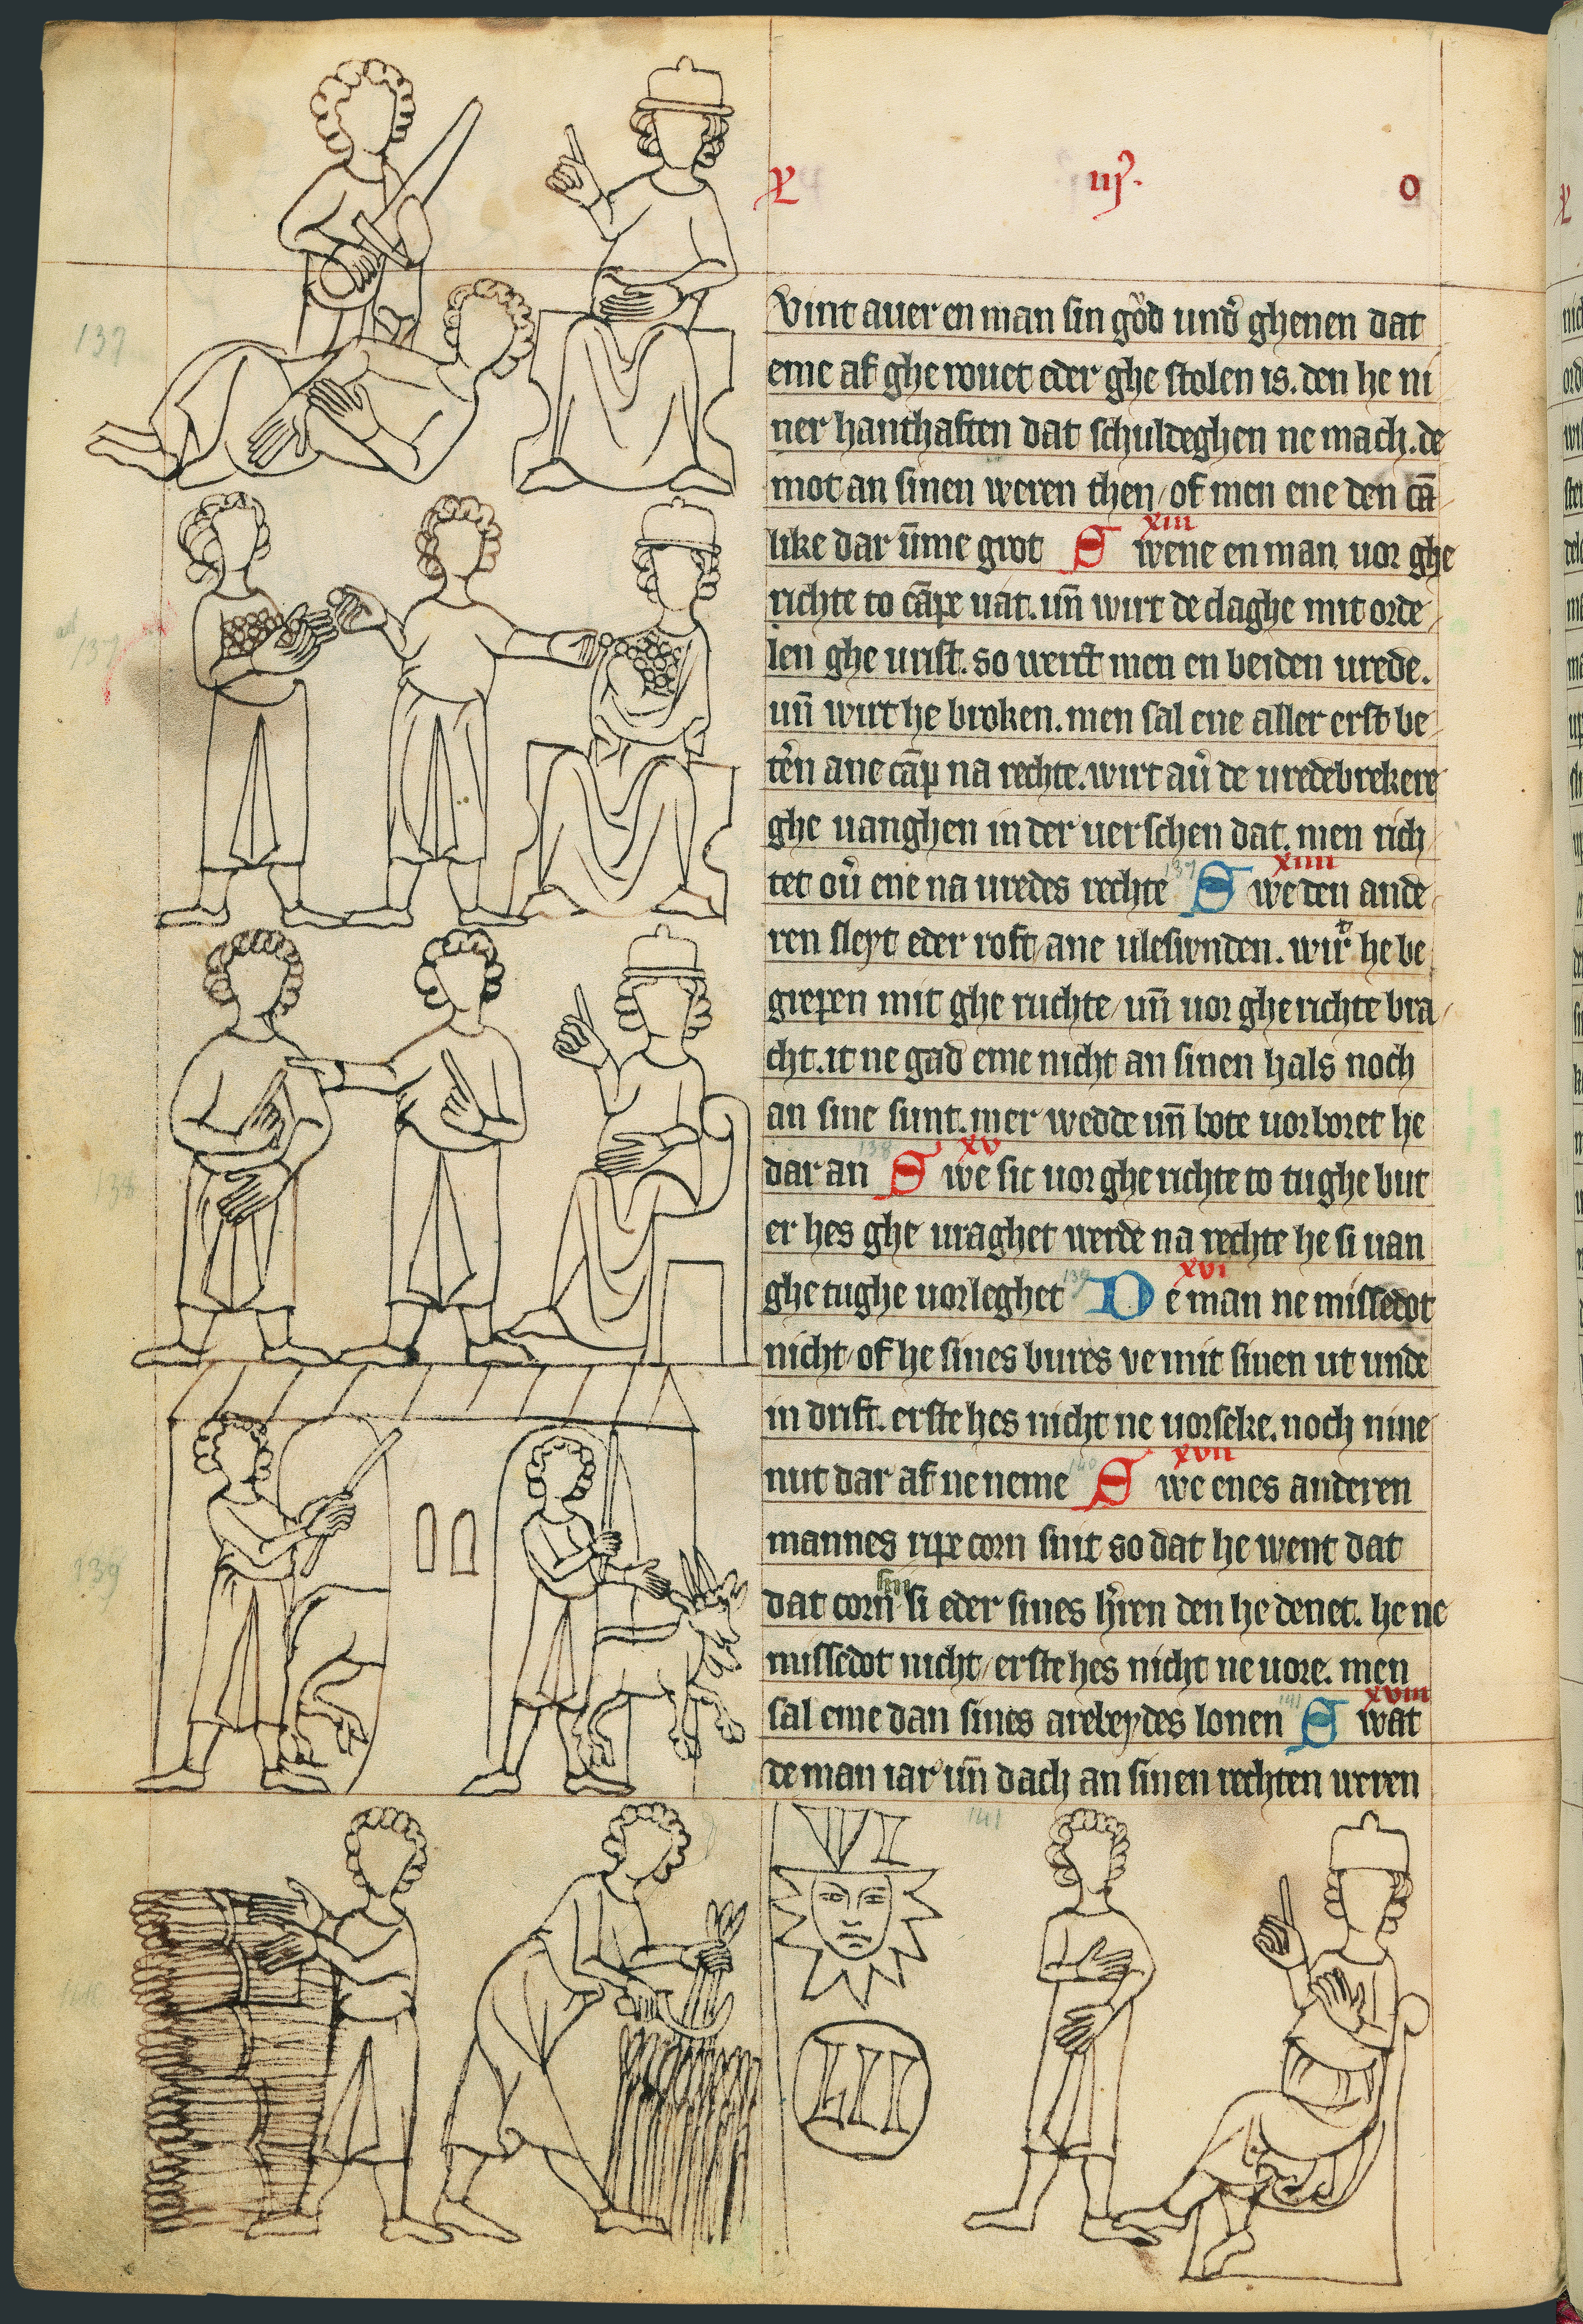 X iij. O
Vint auer en man sin goͮd undͤ ghenen dat
eme af ghe rouet eder ghe stolen is. den he ni
ner hanthaften dat schuldeghen ne mach. de
mot an sinen weren then / of men ene den cā
like dar ūme grot S wene en man uor ghe
xiii
richte to cāpe uāt. uñ wirt de claghe mit orde
len ghe urist. so werct men en beiden urede.
uñ wirt he broken. men sal ene aller erst be
tern ane cāp na rechte. wirt auͤ de uredebrekere
ghe uanghen in der uerschen dat. men rich
tet ouͤ ene na uredes rechte S we den ande
137
xiiii
ren sleyt eder roft / ane ulesivnden. wirt he be
grepen mit ghe ruchte / uñ uor ghe richte bra
cht. it ne gad eme nicht an sinen hals noch
an sine sunt. mer wedde uñ bote uorboret he
dar an S we sic uor ghe richte to tughe but
138
xv
er hes ghe uraghet werde na rechte he si uan
ghe tughe uorleghet D e man ne missedot
139
xvi
nicht / of he sines bures ve mit sinen ut unde
in drift. erste hes nicht ne uorseke. noch nine
nut dar af ne neme S we enes anderen
140
xvii
mannes ripe corn snit so dat he went dat
dat corn sin si eder sines hͤren den he denet. he ne
missedot nicht / erste hes nicht ne uore. men
sal eme dan sines arebeydes lonen S wat
141
xviii
de man iar uñ dach an sinen rechten weren
137
137
138
139
140
VI
LII
141